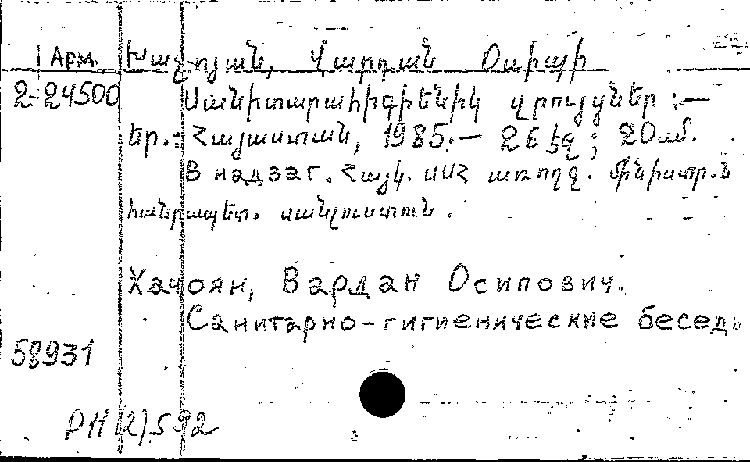 Арм. Խաչոյան, Վարդան Օսիպի
2-24500 Սանիտարահիգիենիկ զրույցներ :—
Եր.: Հայաստան, 1985.— 26 էջ ; 20 սմ.
В надзаг. Հայկ. ՍՍՀ առողջ. մինիստր. և
հանրապետ. սանլուստուն.
Хачоян, Вардан Осипович.
Санитарно-гигиенические беседы
58931
РН(2)592